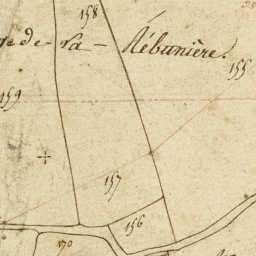 158
de la Rébunière.
155
159
157
156
170